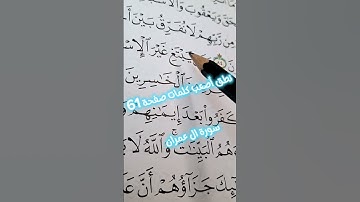 حَٰقَ وَيَعْقُوبَ
مِن رَّبِّهِمْ لَا نُفَرِّقُ بَيْنَ أَ
يَبْتَغِ غَيْرَ ٱلْإِسْ
ٱلْخَٰسِرِينَ
نطق أصعب كلمات صفحة 61
كَفَرُوا۟ بَعْدَ إِيمَٰنِهِمْ
سورة ال عمران
هُمُ ٱلْبَيِّنَٰتُ ۚ وَٱللَّهُ لَا
ئِكَ جَزَآؤُهُمْ أَنَّ عَلَ